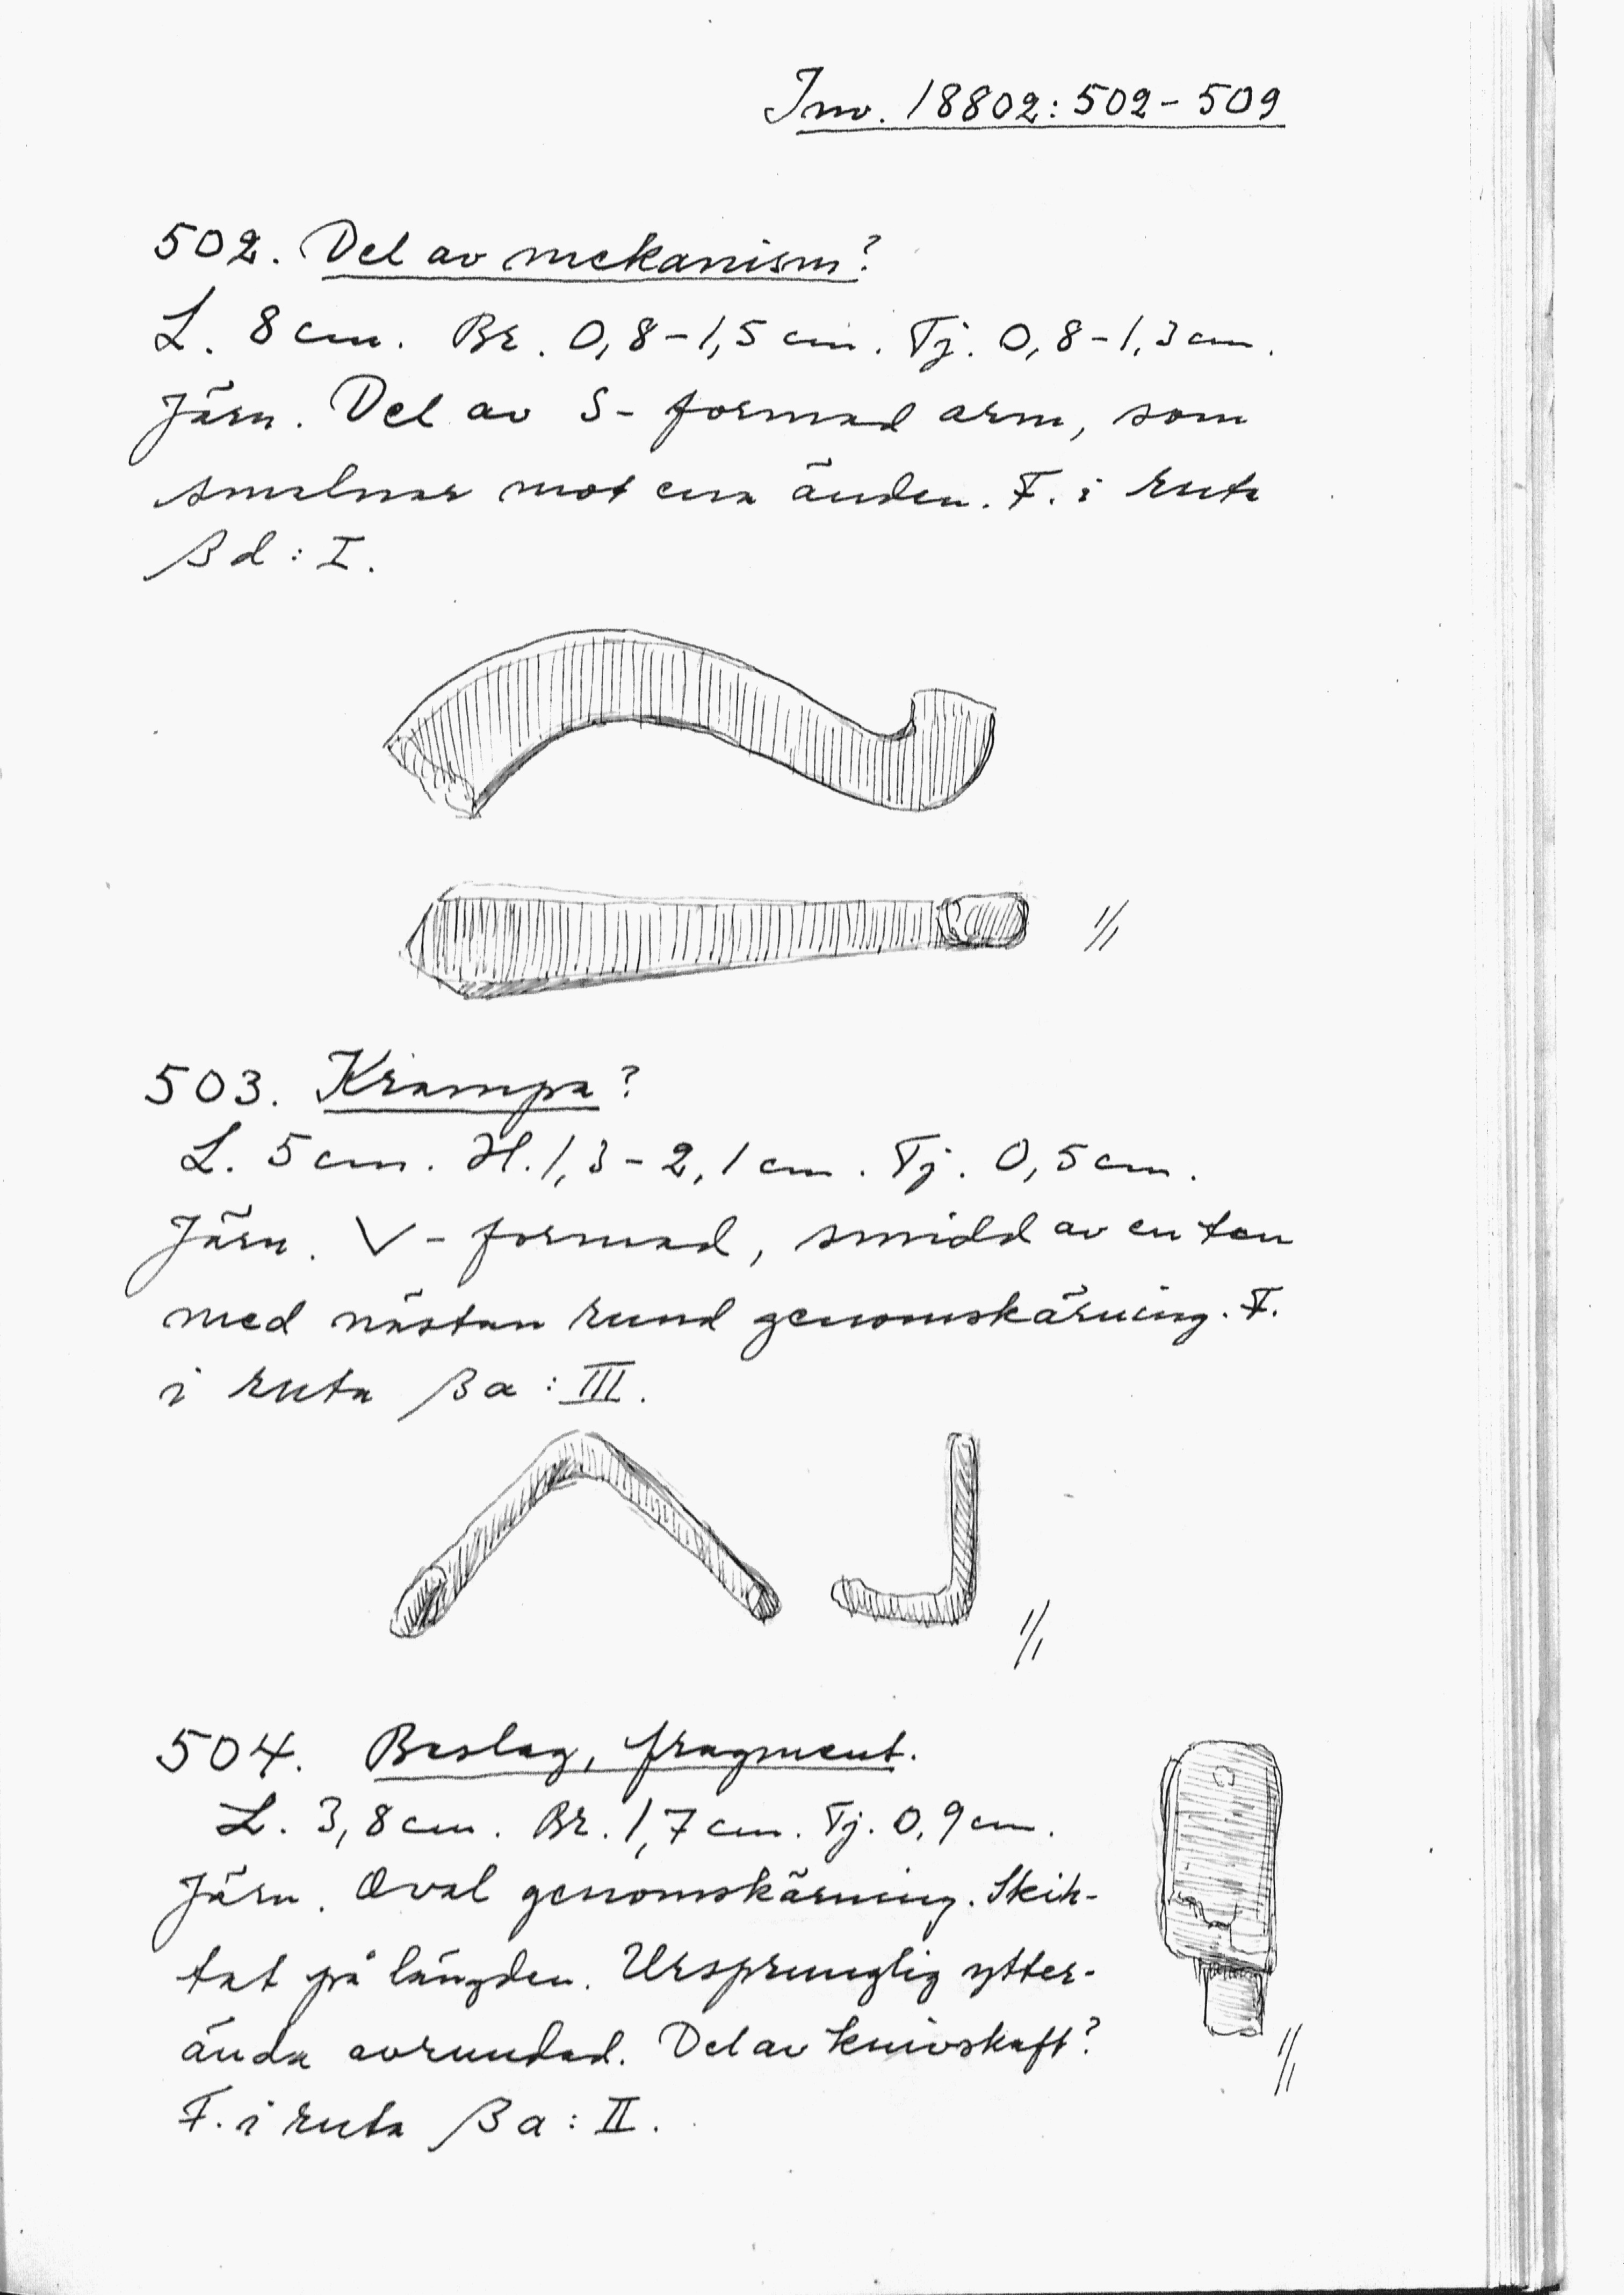 Inv. 18802:502-509
502. Del av mekanism?
L. 8 cm. Br. 0,8-1,5 cm. Tj. 0,8-1,3 cm.
Järn. Del av S-formad arm, som
smalnar mot ena änden. F. i ruta
βd:I.
1/1
503. Krampa?
L. 5 cm. H. 1,3-2,1 cm. Tj. 0,5 cm.
Järn. V-formad, smidd av en ten
med nästan rund genomskärning. F.
i ruta βa:III.
1/1
504. Beslag, fragment.
L. 3,8 cm. Br. 1,7 cm. Tj. 0,9 cm.
Järn. Oval genomskärning. Skik-
tat på längden. Ursprunglig ytter-
ända avrundad. Del av knivskaft?
F. i ruta βa:II.
1/1